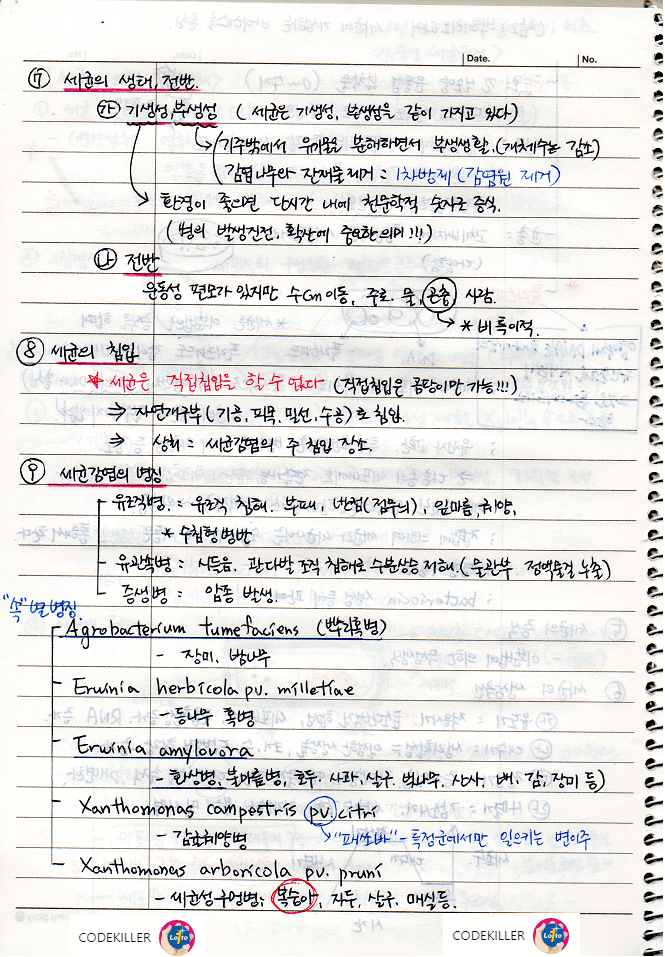 Date. No.
⑦ 세균의 생태, 전반.
㉮ 기생성, 부생성 ( 세균은 기생성, 부생성을 같이 가지고 있다)
기주밖에서 유기물을 분해하면서 부생생활. (개체수는 감소)
감염나무와 잔재물 제거 = 1차방제 (감염원 제거)
환경이 좋으면 단시간 내에 천문학적 숫자로 증식.
(병의 발생진전, 확산에 중요한 의미!!!)
㉯ 전반
운동성 편모가 있지만 수Cm 이동, 주로. 물, 곤충, 사람.
* 비특이적.
⑧ 세균의 침입
* 세균은 직접침입을 할 수 없다 (직접침입은 곰팡이만 가능!!!)
⇒ 자연개구부 (기공, 피목, 밀선, 수공)로 침입.
⇒ 상처 = 세균감염의 주 침입 장소.
⑨ 세균감염의 병징
유조직병. = 유조직 침해. 부패, 반점(점무늬), 잎마름 궤양,
* 수침형 병반
유관속병 = 시듦음. 관다발 조직 침해로 수분상승 저해. (물관부 점액물질 누출)
증생병 = 암종 발생.
"속"별 병징
Agrobacterium tumefaciens (뿌리혹병)
- 장미, 밤나무
Erwinia herbicola pv. milletiae
- 등나무 혹병
Erwinia amylovora
- 화상병, 불마름병, 호두. 사과, 살구. 벚나무, 산사, 배, 감, 장미 등)
Xanthomonas campestris pv. citri
- 감귤궤양병
"패쏘바" - 특정균에서만 일으키는 변이주
Xanthomonas arboricola pv. pruni
- 세균성구멍병; 복숭아, 자두, 살구. 매실등.
CODEKILLER Lotto
CODEKILLER Lotto